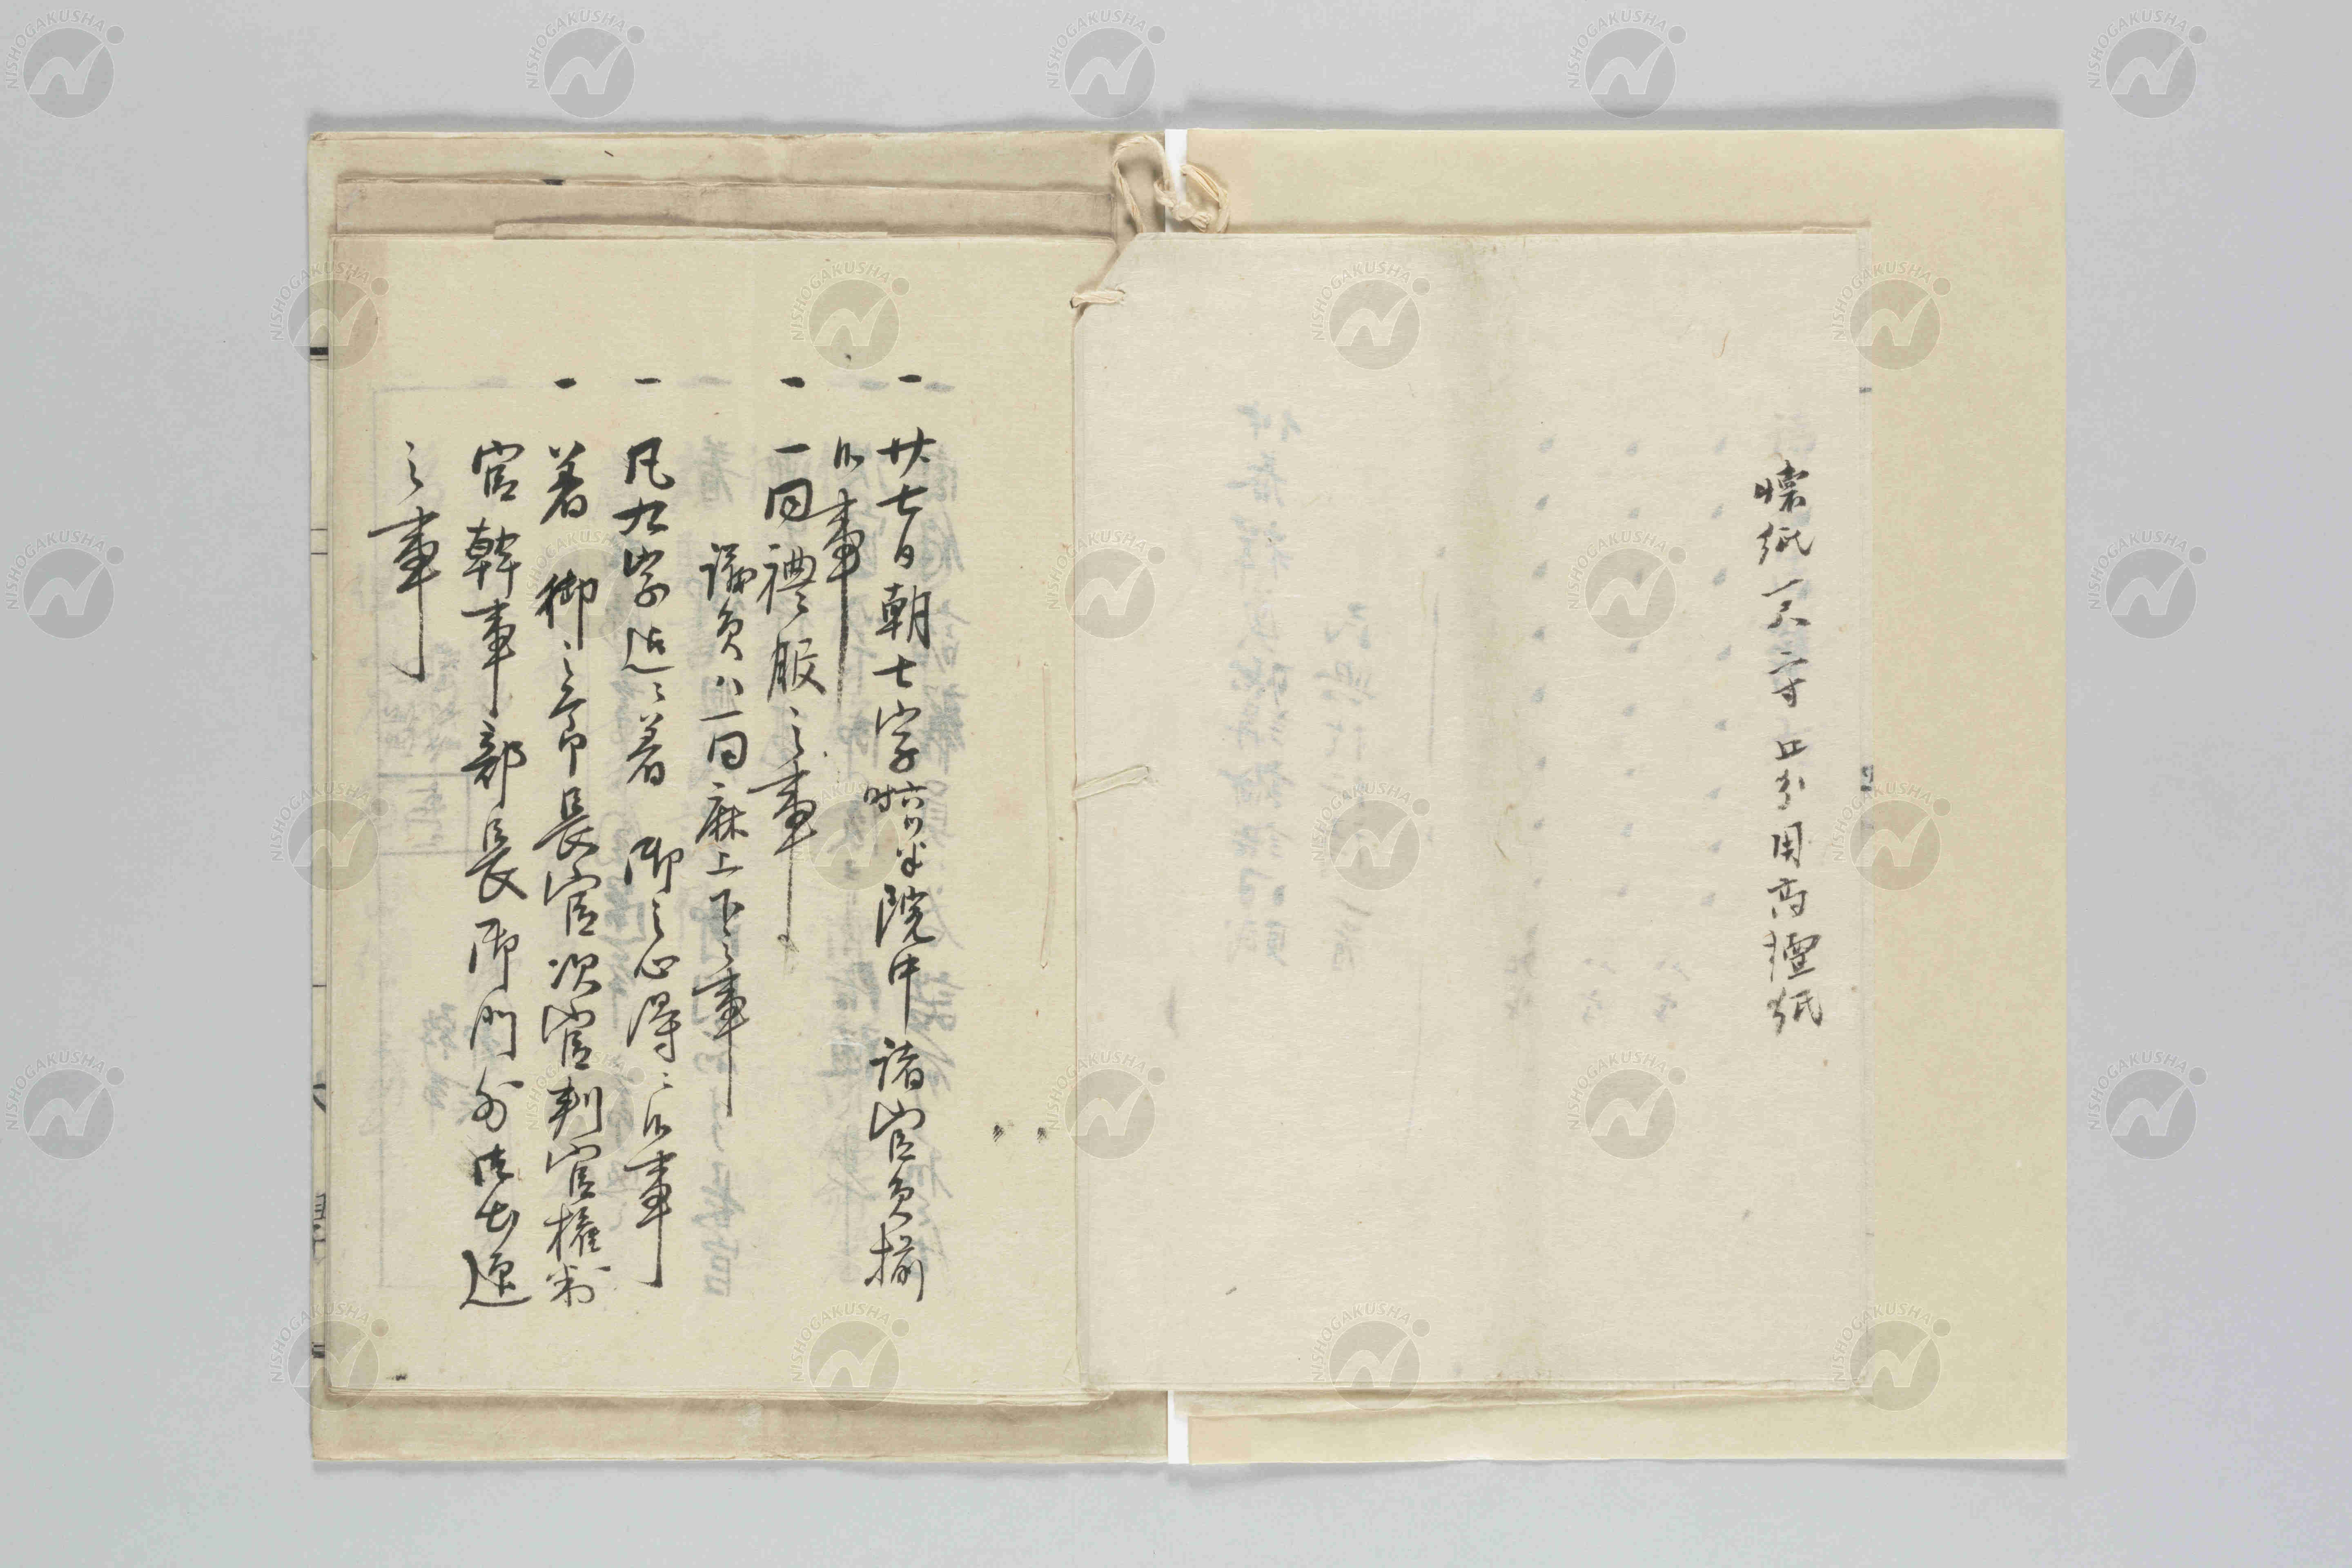 懐紙一尺二寸五分用高檀紙
一 廿七日朝七字時六ツ半院中諸官員揃
候事
一 一同禮服之事
議員ハ一同麻上下之事
一 凡九字迄ニ着 御之心得ニ候事
一 着 御之節長官次官判官権判
官幹事部長御門外御出迎
之事
NISHOGAKUSHA